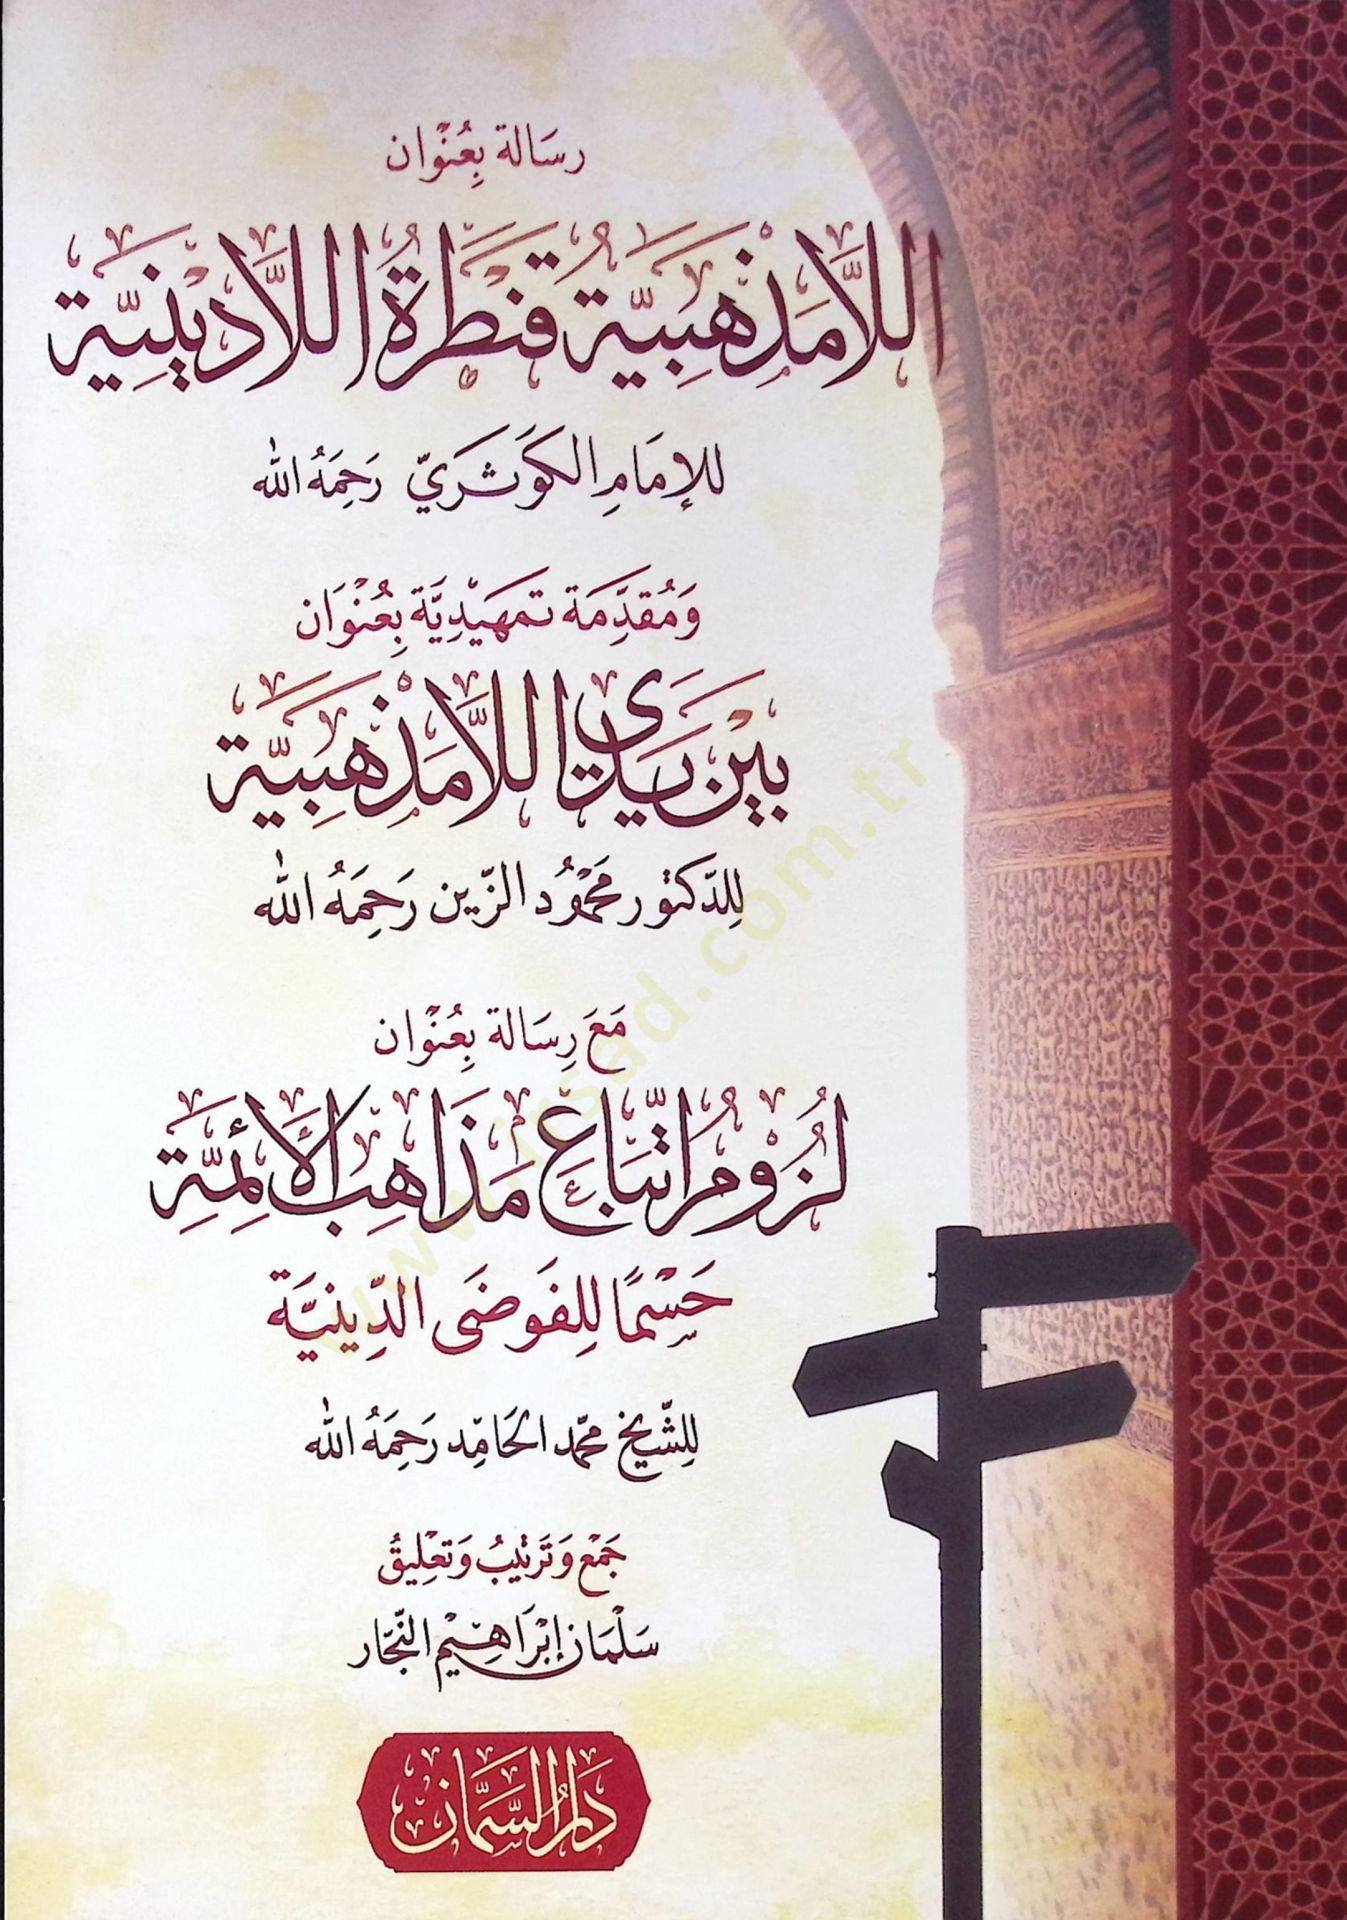 رسَالة بِعُنْوَان
اللَّامَذْهَبِيَّة قَنْطَرَةُ اللَّادِينِيَّة
للإمَامِ الكَوْثَرِيّ رَحِمَهُ الله
وَمُقَدِّمَة تَمهَيْدِيَّة بِعُنْوَان
بَيْنَ يَدَيِ اللَّامَذْهَبِيَّة
لِلدّكتور مَحْمُود الزّين رَحِمَهُ الله
مَعَ رِسَالة بِعُنْوَان
لُزُومُ اتِّبَاعِ مَذَاهِبِ الأَئِمَّةِ
حَسْمًا لِلفَوضَى الدِّينِيَّة
لِلشّيخ محمّد الحَامِد رَحِمَهُ الله
جَمْع وَتَرتيْبُ وَتعْلِيقُ
سَلْمَان إبْرَاهِيْم النّجّار
دَارُ السَّمَّان
www.irsad.com.tr